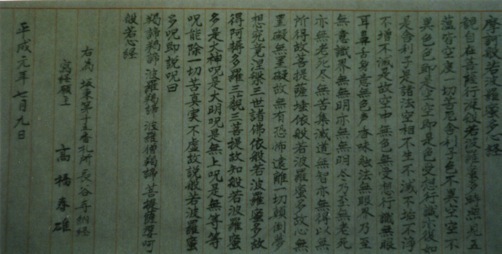 摩訶般若波羅蜜多心経
観自在菩薩行深般若波羅蜜多時照見五
蘊皆空度一切苦厄舎利子色不異空空不
異色色即是空空即是色受想行識亦復如
是舎利子是諸法空相不生不滅不垢不浄
不増不減是故空中無色無受想行識無眼
耳鼻舌身意無色声香味触法無眼界乃至
無意識界無無明亦無無明尽乃至無老死
亦無老死尽無苦集滅道無智亦無得以無
所得故菩提薩埵依般若波羅蜜多故心無
罣礙無罣礙故無有恐怖遠離一切顛倒夢
想究竟涅槃三世諸佛依般若波羅蜜多故
得阿耨多羅三藐三菩提故知般若波羅蜜
多是大神呪是大明呪是無上呪是無等等
呪能除一切苦真実不虚故説般若波羅蜜
多呪即説呪曰
羯諦羯諦波羅羯諦波羅僧羯諦菩提薩摩訶
般若心経
右為 坂東第十五番札所長谷寺納経
写経願主 高橋春雄
平成元年七月九日